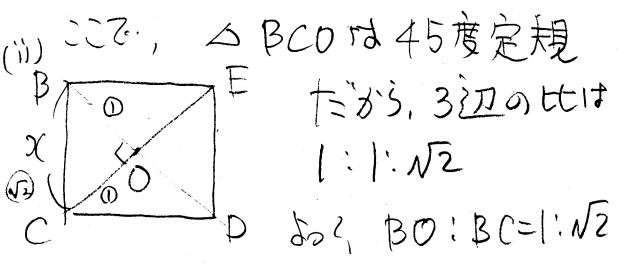 (ii) ここで、△BCOは45度定規
だから、3辺の比は
1:1:√2
よって、BO:BC=1:√2
B
E
①
x
√2
O
①
C
D